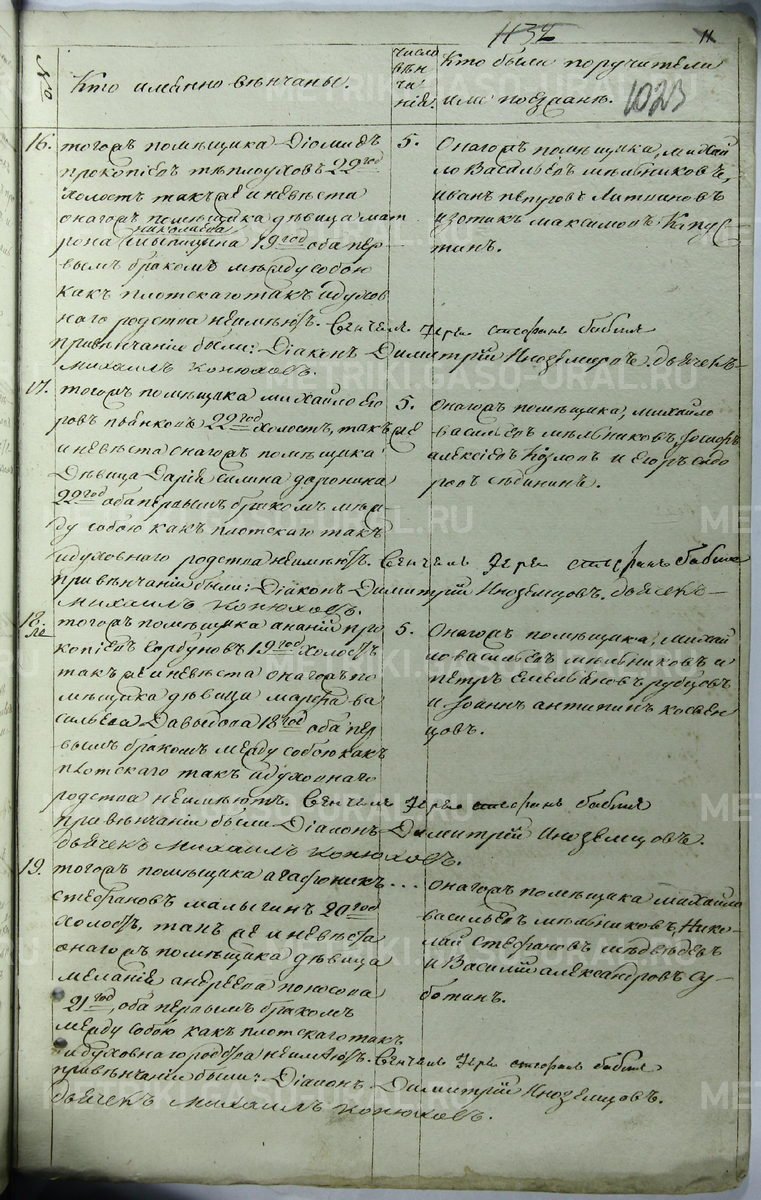 1132 11
№
Кто имянно вѣнчаны.
число вѣн чанія.
Кто были поручители
или поезжане. 1023
16. тогожъ помѣщика Діомидъ
прокопіевъ 22 год
холостъ такъ же и невѣста
онагожъ помѣщика дѣвица мат
рона николаева 19 год оба пер
вымъ бракомъ между собою
какъ плотскаго такъ и духов
наго родства неимѣютъ. Венчалъ Іерей стефанъ бабинъ
при венчаніи были: Діаконъ Димитрій Иноземцовъ. дьячекъ
михаилъ конюховъ.
5. Онагожъ помѣщика, михай
ло Васильевъ мѣльниковъ,
иванъ петровъ Литвиновъ
изотикъ максимовъ Капус
тинъ.
17. тогожъ помѣщика михайло его
ровъ 22 год холостъ, такъ же
и невѣста онагожъ помѣщика
дѣвица Дарія
22 год оба первымъ бракомъ меж
ду собою какъ плотскаго такъ
и духовнаго родства неимѣютъ. Венчалъ Іерей стефанъ бабинъ
при вѣнчаніи были: Діаконъ Димитрій Иноземцовъ. дьячекъ
михаилъ конюховъ.
5. онагожъ помѣщика, михайло
васильевъ мѣльниковъ,
алексіевъ Козловъ и Егоръ сидо
ровъ
18. тогожъ помѣщика ананій про
копіевъ Горбуновъ 19 год холостъ
такъ же и невѣста онагожъ по
мѣщика дѣвица марфа ва
сильева Давыдова 18 год оба пер
вымъ бракомъ между собою какъ
плотскаго такъ и духовнаго
родства неимѣютъ. Венчалъ Іерей стефанъ бабинъ
при вѣнчаніи были Діаконъ Димитрій Иноземцовъ.
дьячекъ михаилъ конюховъ.
5. Онагожъ помѣщика, михай
ло васильевъ мѣльниковъ и
петръ емельяновъ рубцовъ
и Іоаннъ антипинъ
19. тогожъ помѣщика агафоникъ
стефановъ малыгинъ 20 год
холостъ, такъ же и невѣста
онагожъ помѣщика дѣвица
меланія андреева поносова
21 год, оба первымъ бракомъ
между собою какъ плотскаго такъ
и духовнаго родства неимѣютъ. Венчалъ Іерей стефанъ бабинъ
при вѣнчаніи были: Діаконъ Димитрій Иноземцовъ.
дьячекъ михаилъ конюховъ.
онагожъ помѣщика михайло
васильевъ мѣльниковъ, Нико
лай стефановъ мѣдвѣдевъ
и Василій александровъ Су
ботинъ.
METRIKI.GASO-URAL.RU